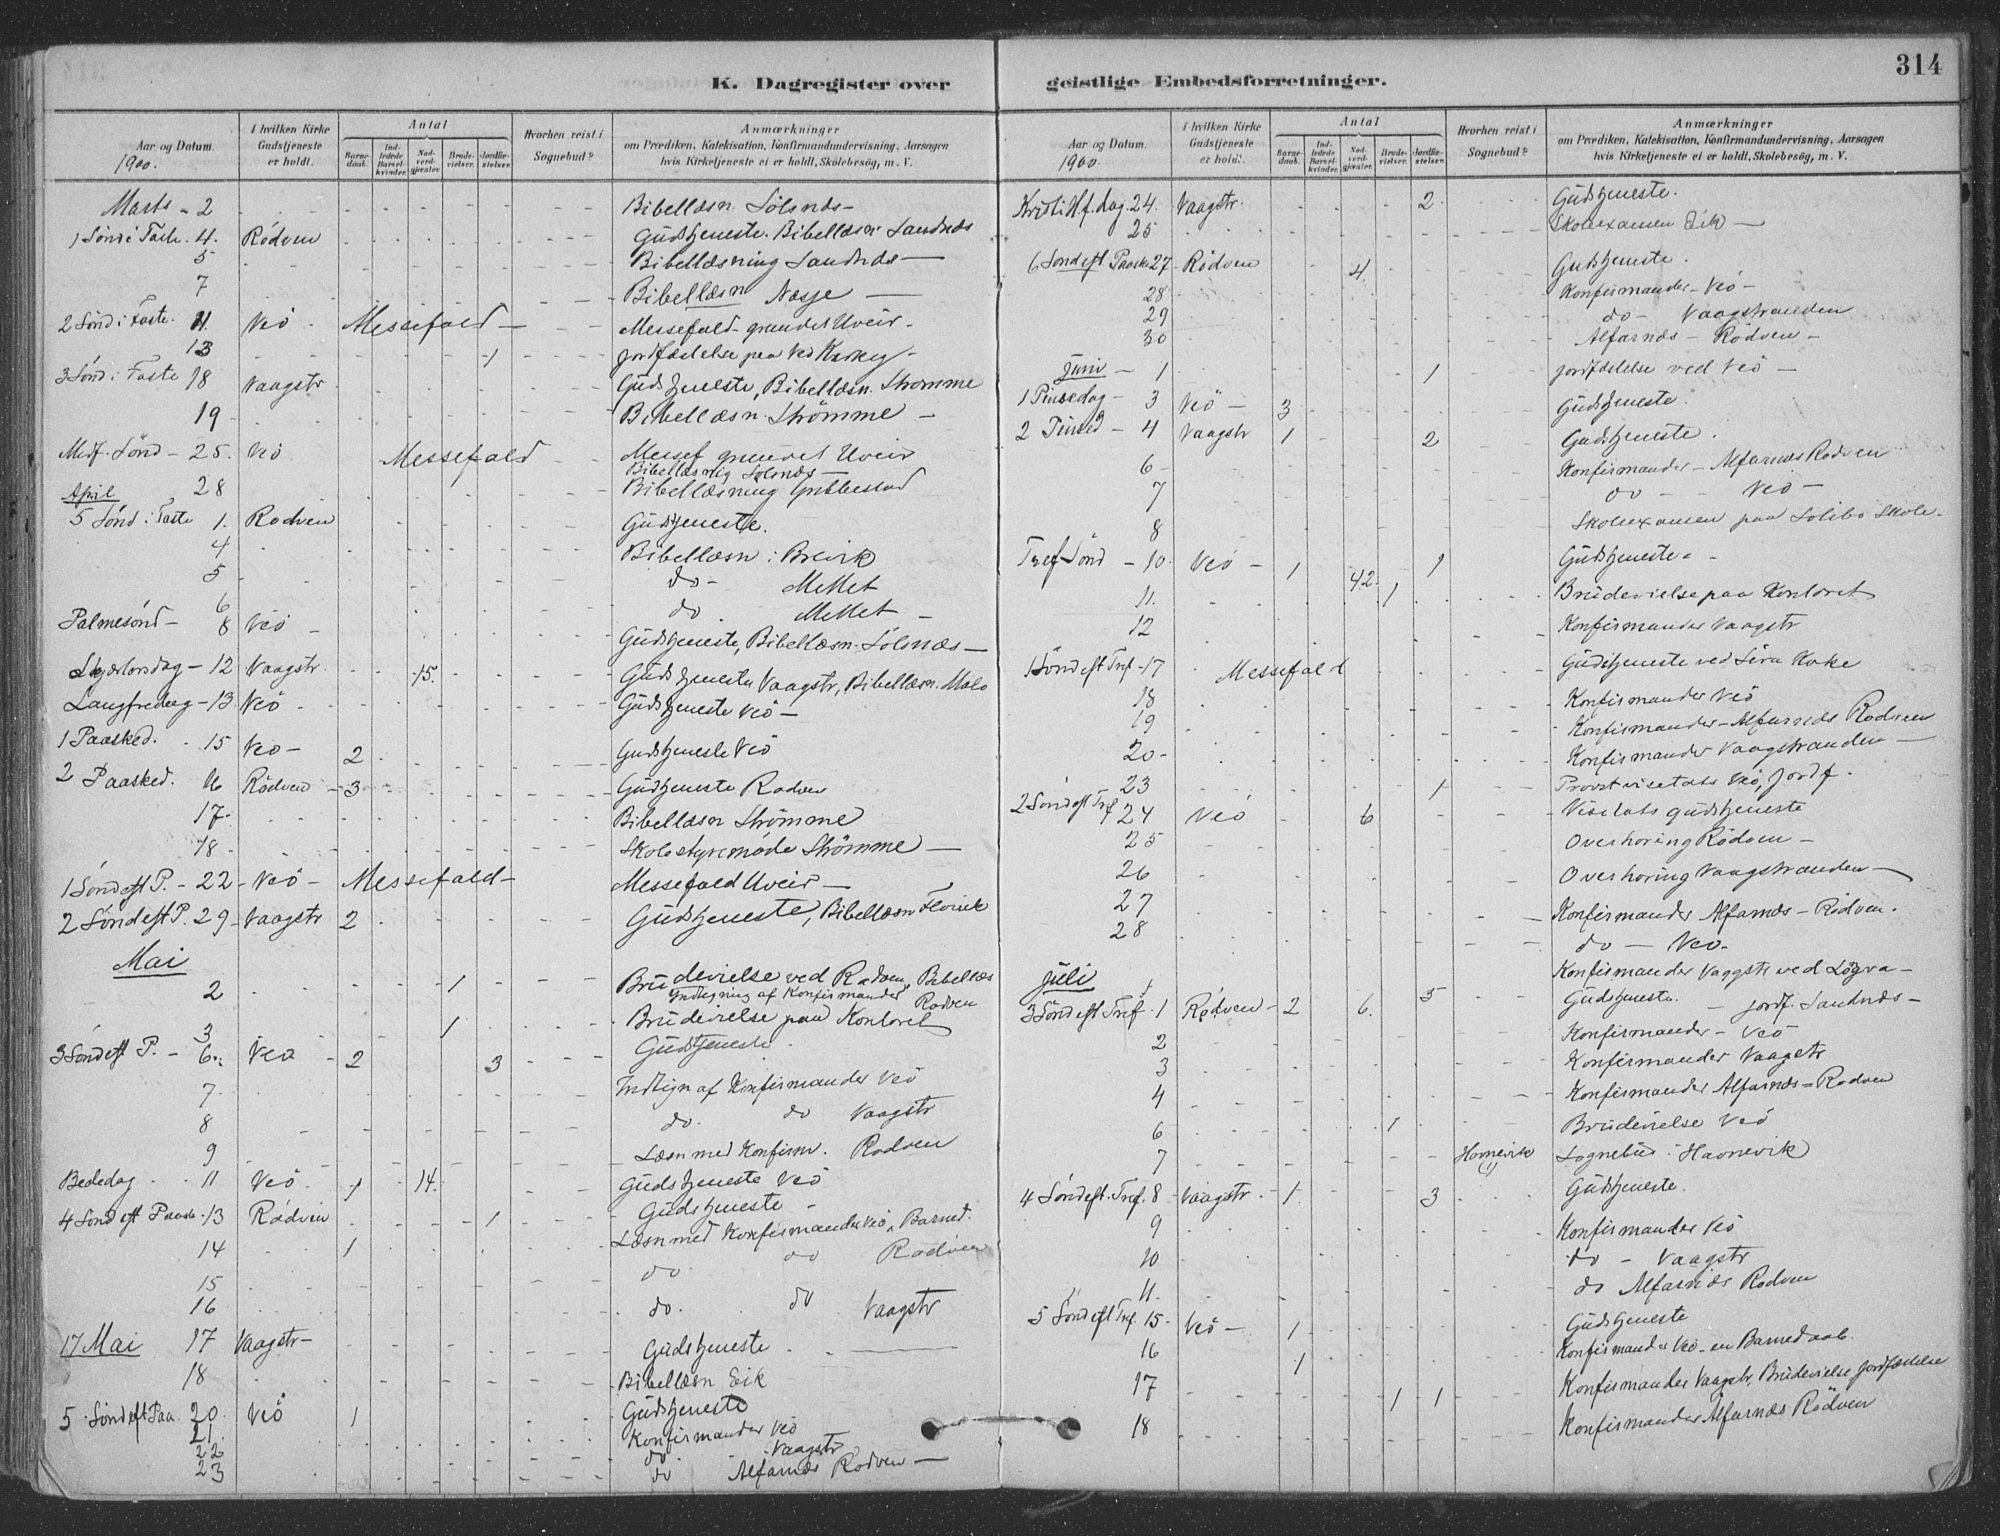 314
K. Dagregister over
geistlige Embedsforretninger.
Aar og Datum.
1900.
I hvilken Kirke Gudstjeneste er holdt.
Antal
Barnedaab.
Indledede Barselkvinder.
Nadverdgjæster.
Brudevielser.
Jordfæstelser.
Hvorhen reist i Sognebud?
Anmærkninger
om Prædiken, Katekisation, Konfirmandundervisning, Aarsagen
hvis Kirketjeneste ei er holdt, Skolebesøg, m. V.
Marts - 2 Bibellæsn. Sølsnæs -
1 Sønd i Faste. 4. Rödven Gudstjeneste. Bibellæsn. Sandnæs
5 Bibellæsning Sandnæs -
7 Bibellæsn Næsje -
2 Sönd i Faste. 11. Veö Messefald - Messefald grundet Uveir -
13 1 Jordfæstelse paa Veö
3 Sönd i Faste 18 Vaagstr Gudstjeneste, Bibellæsn. Strömme
19 Bibellæsn. Strömme -
Midf. Sönd - 25. Veö Messefald Messef grundet Uveir
Bibellæsnig Sølsnæs -
28 Bibellæsning
April
5 Sönd i Faste 1. Rødven Gudstjeneste.
4 Bibellæsn i Breivik
5 do - Mettet
6 do. Mettet -
Palmesönd - 8 Veö - Gudstjeneste, Bibellæsn. Sölsnæs -
Skjærtorsdag - 12 Vaagstr. 15. Gudstjeneste Vaagstr, Bibellæsn.
Langfredag - 13. Veö Gudstjeneste Veö -
1 Paasked. 15 Veö - 2 Gudstjeneste Veö
2 Paasked. 16 Rödven - 3 Gudstjeneste Rødven
17. Bibellæsn Strömme
18. Skolestyremöde Strömme -
1 Sönd eft P. - 22 - Veö - Messefald - Messefald Uveir -
2 Sönd eft P. 29 - Vaagstr 2 Gudstjeneste, Bibellæsn
Mai
2 1 Brudevielse ved Rødven, Bibellæs
Indtegning af Konfirmander Rødven
3 1 Brudevielse paa Kontoret
3 Sönd eft P. - 6. Veö 2 3 Gudstjeneste
7 Indtegn af Konfirmander Veö
8 do. do Vaagstr
9 Læsn med Konfirm. Rødven
Bededag 11 Veö 1 14 Gudstjeneste Veö
4 Sönd eft Paaske 13 Rødven 1 Gudstjeneste
14 1 Læsn med Konfirmander Veö, Barned.
15 do do Rødven
16 do. do Vaagstr
17 Mai 17 Vaagstr - Gudstjeneste
18 Bibellæsn Eik
5 Sönd eft Paa. 20 Veö 1 Gudstjeneste
21. Konfirmander Veö
22 do Vaagstr
23 do Alfarnæs Rødven -
Aar og Datum.
1900.
I hvilken Kirke Gudstjeneste er holdt.
Antal
Barnedaab.
Indledede Barselkvinder.
Nadverdgjæster.
Brudevielser.
Jordfæstelser.
Hvorhen reist i Sognebud?
Anmærkninger
om Prædiken, Katekisation, Konfirmandundervisning, Aarsagen
hvis Kirketjeneste ei er holdt, Skolebesøg, m. V.
Kristi Hf. dag 24. Vaagstr. 2 Gudstjeneste.
25 Skolexamen Eik -
6 Sönd eft Paaske 27 Rödven 4 Gudstjeneste.
28 Konfirmander - Veö -
29 do - Vaagstranden
30 Alfarnæs - Rödven -
Juni - 1 1 Jordfæstelse ved Veö -
1 Pinsedag - 3 Veö - 3 Gudstjeneste.
2 Pinsed - 4 Vaagstr 1 2 Gudstjeneste.
6 - Konfirmander - Alfarnæs Rødven
7 do - Veö -
8 Skolexamen paa Solibö Skole -
Tref Sönd - 10. Veö - 1 42 1 Gudstjeneste -
11. 1 Brudevielse paa Kontoret
12 Konfirmander Vaagstr
1 Sönd eft Tref - 17 Messefald Gudstjeneste ved Sira
18 Konfirmander Veö
19 Konfirmander - Alfarnæs Rødven
20 - Konfirmander Vaagstranden -
23 1 Provstvisitats Veö, Jordf.
2 Sönd eft Tref 24 Veö 6 Visitats gudstjeneste
25 Overhøring Rødven -
26 Overhøring Vaagstranden -
27 Konfirmander Alfarnæs - Rödven.
28 do - Veö.
Juli Konfirmander Vaagstr ved
3 Sönd eft Tref. 1 Rødven - 2 6. 5 Gudstjeneste. - Jordf. Sandnæs -
2 Konfirmander - Veö
3 Konfirmander Vaagstr
4 Konfirmander Alfarnæs - Rødven
6 1 Brudevielse Veö
7 Havnevik (1) Sognebud i Havnevik
4 Sönd eft. Tref. 8 Vaagstr. 1 3 Gudstjeneste.
9 Konfirmander Veö
10 do - Vaagstr
11. do Alfarnæs Rødven
5 Sönd eft Tref. 15. Veö - 1 Gudstjeneste
16 1 Konfirmander Veö - en Barnedaab.
17 1 1 Konfirmander Vaagstr, Brudevielse Jordfæstelse
18 Konfirmander Alfarnæs Rödven